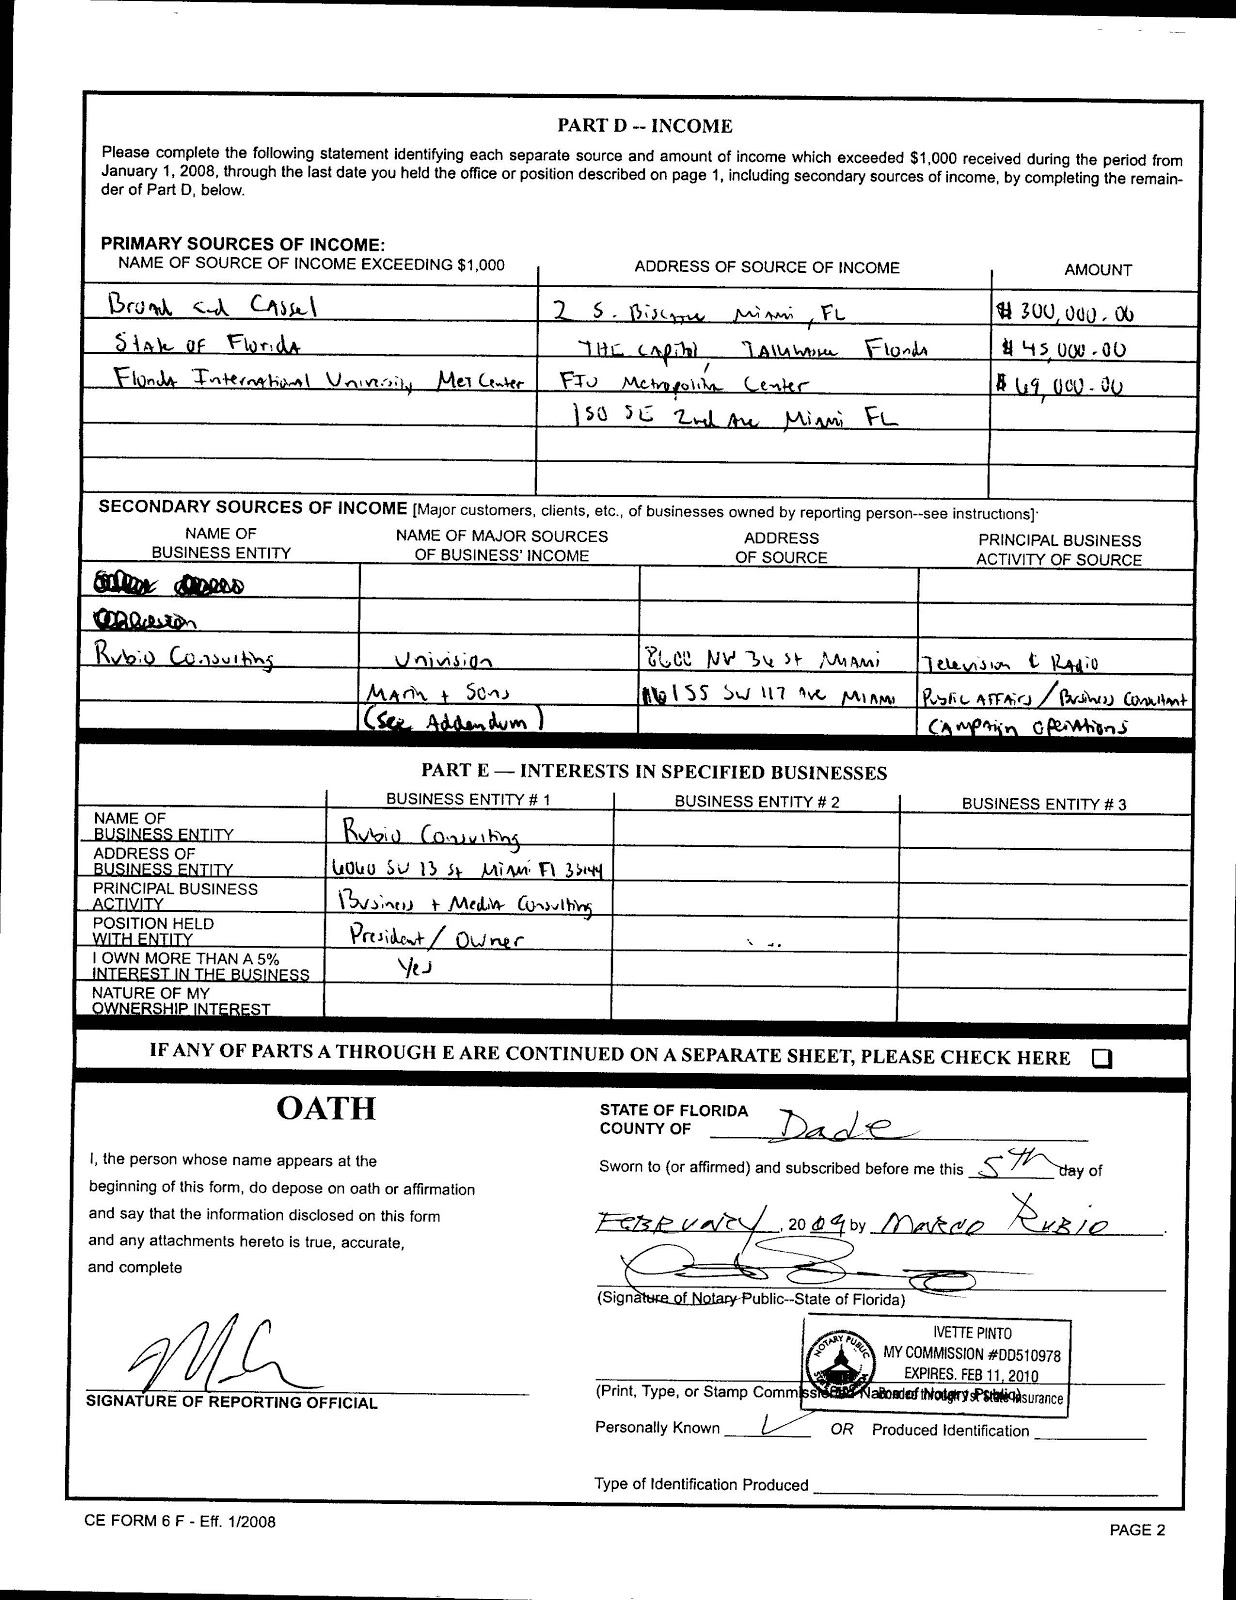 PART D -- INCOME
Please complete the following statement identifying each separate source and amount of income which exceeded $1,000 received during the period from
January 1, 2008, through the last date you held the office or position described on page 1, including secondary sources of income, by completing the remain-
der of Part D, below.
PRIMARY SOURCES OF INCOME:
NAME OF SOURCE OF INCOME EXCEEDING $1,000 ADDRESS OF SOURCE OF INCOME AMOUNT
Broad and Cassel 2 S. Biscayne Miami, FL $ 300,000.00
State of Florida THE Capitol, Tallahassee Florida $ 45,000.00
Florida International University Met Center FIU Metropolitan Center $ 69,000.00
150 SE 2nd Ave Miami FL
SECONDARY SOURCES OF INCOME [Major customers, clients, etc., of businesses owned by reporting person--see instructions]
NAME OF NAME OF MAJOR SOURCES ADDRESS PRINCIPAL BUSINESS
BUSINESS ENTITY OF BUSINESS' INCOME OF SOURCE ACTIVITY OF SOURCE
Rubio Consulting Univision 8600 NW 36 St MIAMI Television & Radio
Marin + Sons 155 SW 117 Ave MIAMI Public AFFAirs / Business Consultant
(See Addendum) CAMPAign OPerAtions
PART E — INTERESTS IN SPECIFIED BUSINESSES
BUSINESS ENTITY # 1 BUSINESS ENTITY # 2 BUSINESS ENTITY # 3
NAME OF
BUSINESS ENTITY Rubio Consulting
ADDRESS OF
BUSINESS ENTITY 6060 SW 13 St Miami Fl 33144
PRINCIPAL BUSINESS
ACTIVITY Business + Media Consulting
POSITION HELD
WITH ENTITY President / Owner
I OWN MORE THAN A 5%
INTEREST IN THE BUSINESS Yes
NATURE OF MY
OWNERSHIP INTEREST
IF ANY OF PARTS A THROUGH E ARE CONTINUED ON A SEPARATE SHEET, PLEASE CHECK HERE
OATH
I, the person whose name appears at the
beginning of this form, do depose on oath or affirmation
and say that the information disclosed on this form
and any attachments hereto is true, accurate,
and complete
SIGNATURE OF REPORTING OFFICIAL
STATE OF FLORIDA
COUNTY OF Dade
Sworn to (or affirmed) and subscribed before me this 5th day of
FEBRUARY, 2009 by MARCO RUBIO
(Signature of Notary Public--State of Florida)
IVETTE PINTO
MY COMMISSION #DD510978
EXPIRES. FEB 11, 2010
NOTARY PUBLIC
(Print, Type, or Stamp Commissioned Name of Notary Public)
Bonded through 1st State Insurance
Personally Known OR Produced Identification
Type of Identification Produced
CE FORM 6 F - Eff. 1/2008
PAGE 2